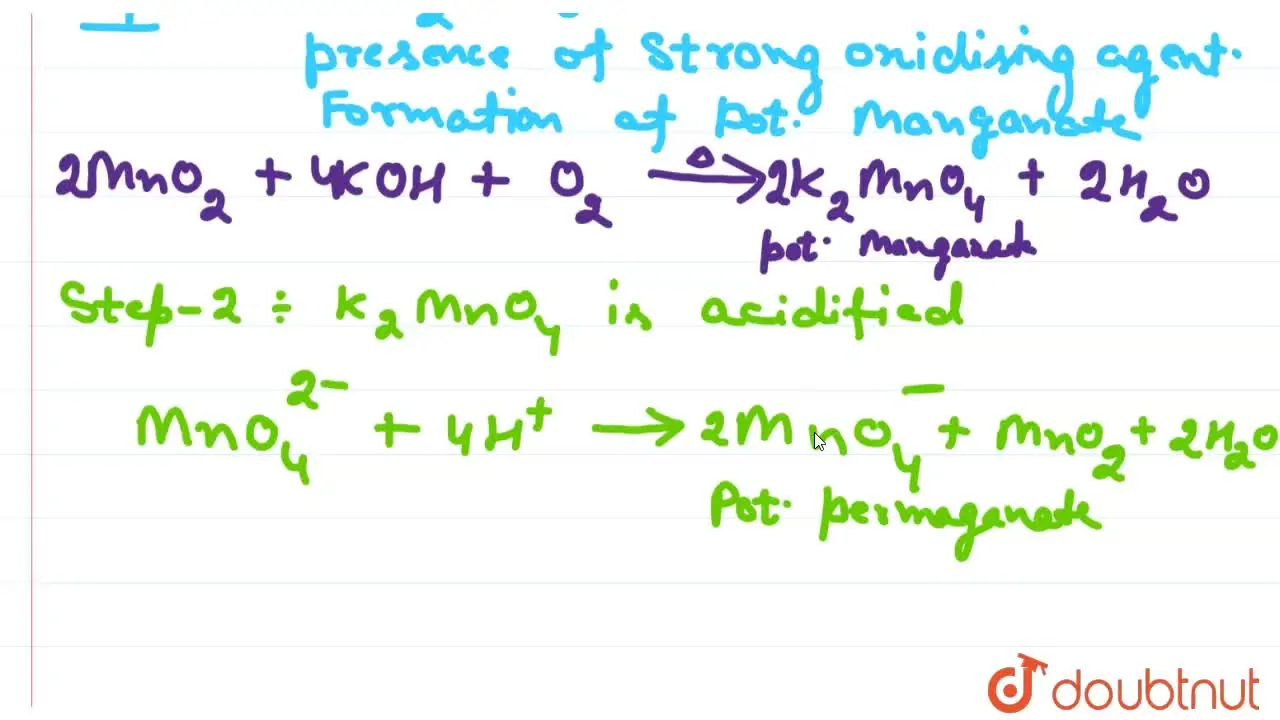 presence of strong oxidising agent.
Formation of pot. Manganate
2MnO₂ + 4KOH + O₂ —Δ→ 2K₂MnO₄ + 2H₂O
pot. Manganate
Step-2 ÷ K₂MnO₄ is acidified
MnO₄²⁻ + 4H⁺ → 2MnO₄⁻ + MnO₂ + 2H₂O
Pot. permaganate
doubtnut